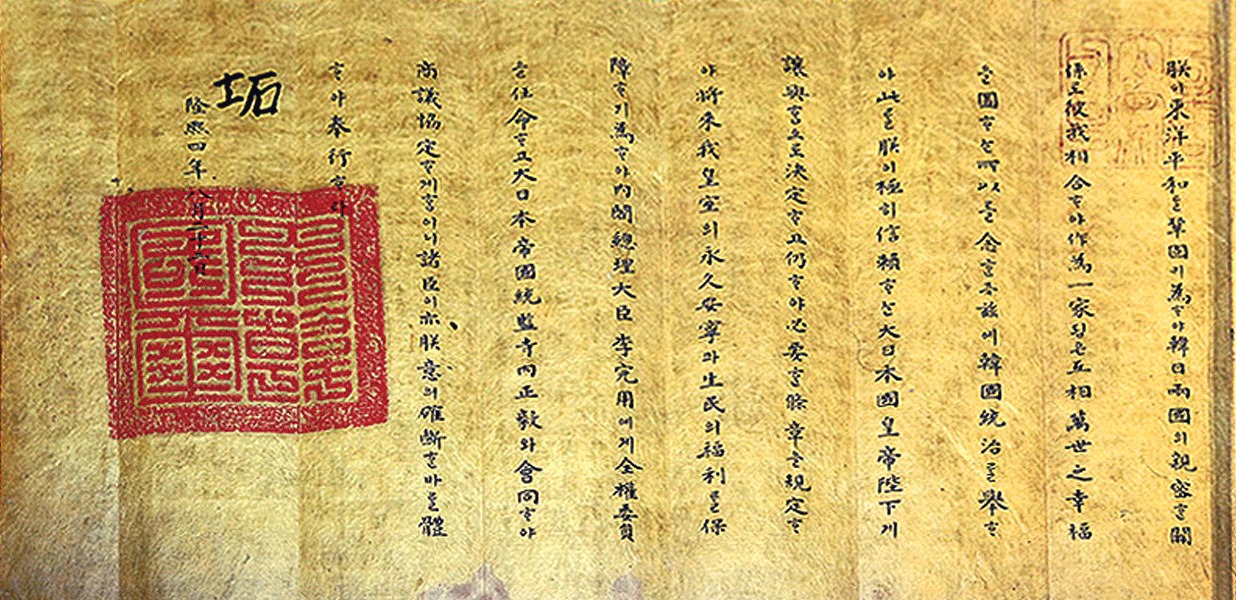 朕이東洋平和를鞏固히爲ᄒᆞ야韓日兩國의親密ᄒᆞᆫ關
係로彼我相合ᄒᆞ야作爲一家됨은互相萬世之幸福
을圖ᄒᆞᄂᆞᆫ所以를念ᄒᆞᆫ즉玆에韓國統治를擧ᄒᆞ
야此를朕이極히信賴ᄒᆞᄂᆞᆫ大日本國皇帝陛下게
讓與ᄒᆞ므로決定ᄒᆞ고仍ᄒᆞ야必要ᄒᆞᆫ條章을規定ᄒᆞ
야將來我皇室의永久安寧과生民의福利를保
障ᄒᆞ기爲ᄒᆞ야內閣總理大臣李完用에게全權委員
을任命ᄒᆞ고大日本帝國統監寺內正毅와會同ᄒᆞ야
商議協定ᄒᆞ게ᄒᆞᆷ이니諸臣이亦朕意의確斷ᄒᆞᆫ바를體
ᄒᆞ야奉行ᄒᆞ라
坧
隆熙四年八月二十二日